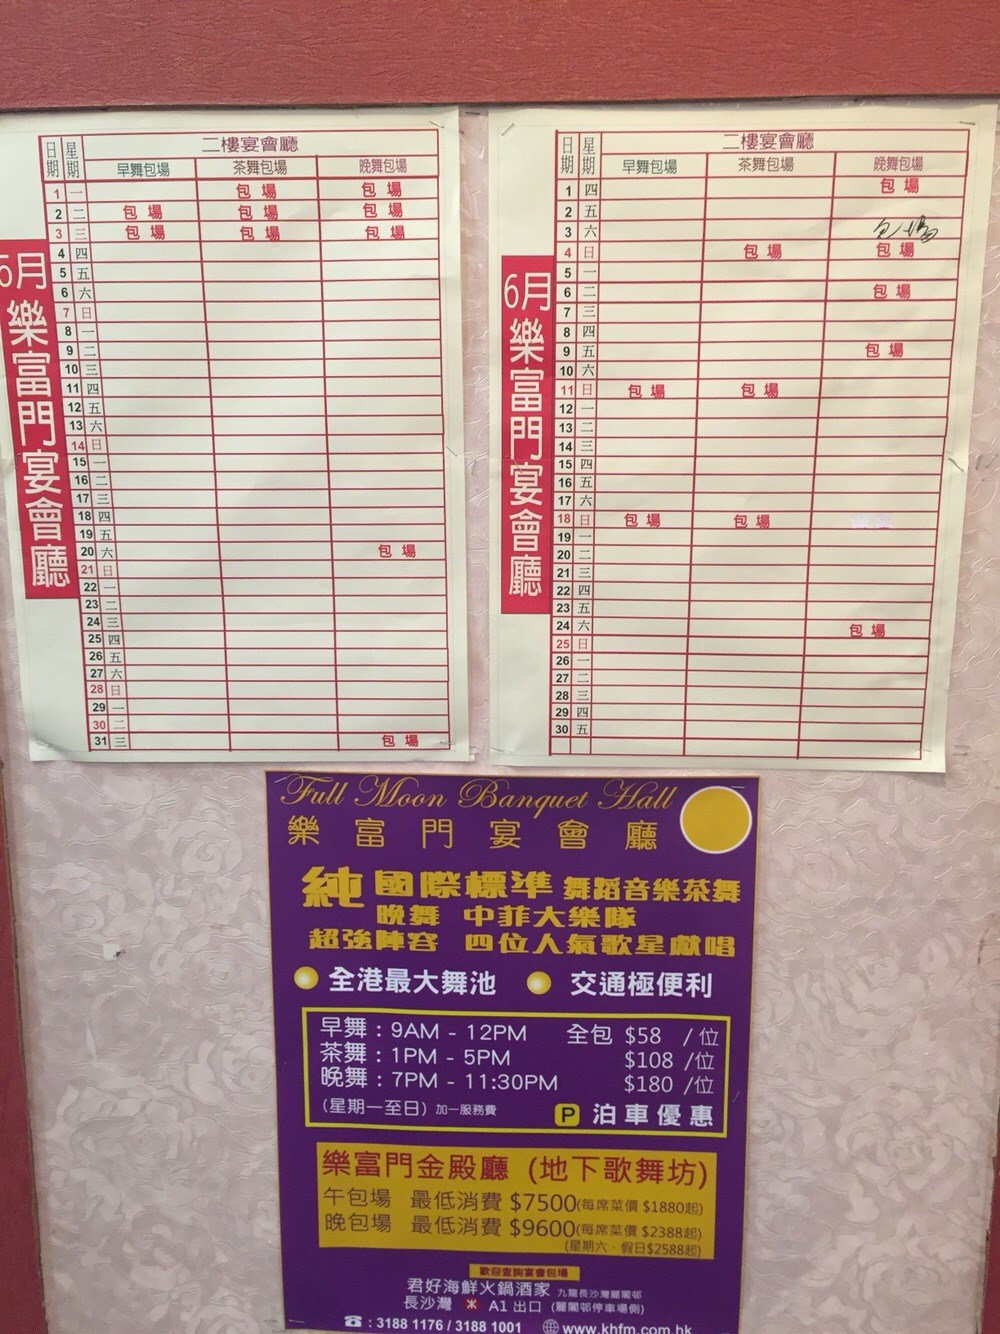 5月
樂富門宴會廳
日期 星期 二樓宴會廳
早舞包場 茶舞包場 晚舞包場
1 一 包場 包場
2 二 包場 包場 包場
3 三 包場 包場 包場
4 四
5 五
6 六
7 日
8 一
9 二
10 三
11 四
12 五
13 六
14 日
15 一
16 二
17 三
18 四
19 五
20 六 包場
21 日
22 一
23 二
24 三
25 四
26 五
27 六
28 日
29 一
30 二
31 三 包場
6月
樂富門宴會廳
日期 星期 二樓宴會廳
早舞包場 茶舞包場 晚舞包場
1 四 包場
2 五
3 六 包場
4 日 包場 包場
5 一
6 二 包場
7 三
8 四
9 五 包場
10 六
11 日 包場 包場
12 一
13 二
14 三
15 四
16 五
17 六
18 日 包場 包場
19 一
20 二
21 三
22 四
23 五
24 六 包場
25 日
26 一
27 二
28 三
29 四
30 五
Full Moon Banquet Hall
樂富門宴會廳
純國際標準 舞蹈音樂茶舞
晚舞 中菲大樂隊
超強陣容 四位人氣歌星獻唱
全港最大舞池 交通極便利
早舞：9AM - 12PM 全包 $58 /位
茶舞：1PM - 5PM $108 /位
晚舞：7PM - 11:30PM $180 /位
(星期一至日) 加一服務費 P 泊車優惠
樂富門金殿廳 (地下歌舞坊)
午包場 最低消費 $7500(每席菜價 $1880起)
晚包場 最低消費 $9600(每席菜價 $2388起)
(星期六．假日$2588起)
歡迎查詢宴會包場
君好海鮮火鍋酒家 九龍長沙灣麗閣邨
長沙灣 A1 出口 (麗閣邨停車場側)
☎：3188 1176 / 3188 1001 www.khfm.com.hk